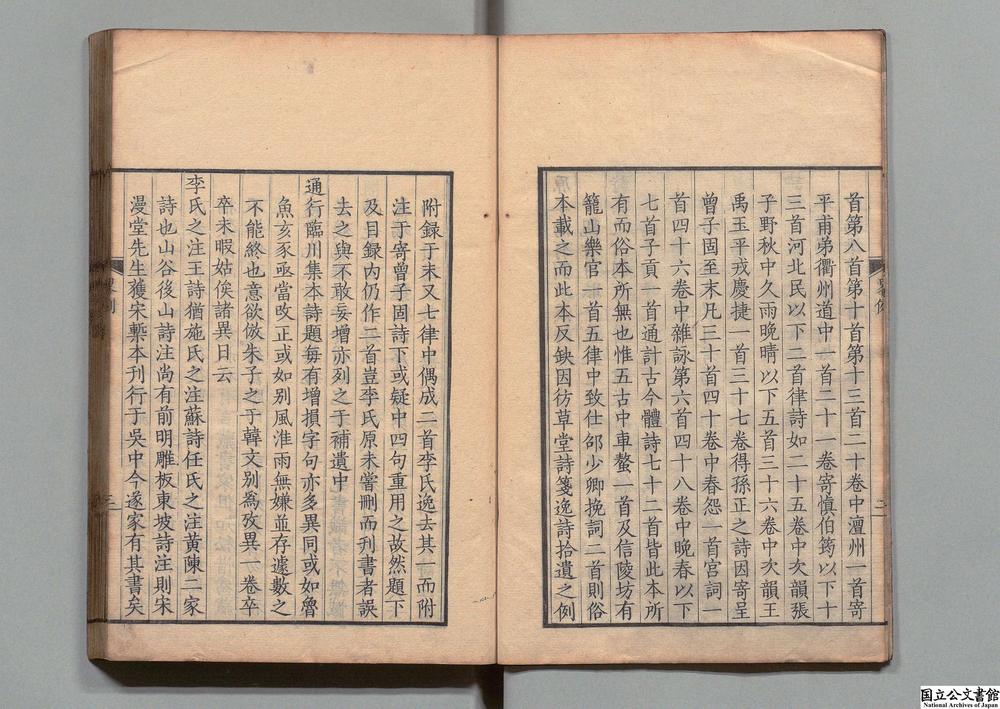 首第八首第十首第十三首二十卷中澶州一首寄
平甫弟衢州道中一首二十一卷寄慎伯筠以下十
三首河北民以下二首律詩如二十五卷中次韻張
子野秋中久雨晚晴以下五首三十六卷中次韻王
禹玉平戎慶捷一首三十七卷得孫正之詩因寄呈
曾子固至末凡三十首四十卷中春怨一首宮詞一
首四十六卷中雜詠第六首四十八卷中晚春以下
七首子貢一首通計古今體詩七十二首皆此本所
有而俗本所無也惟五古中車螯一首及信陵坊有
籠山樂官一首五律中致仕邵少卿挽詞二首則俗
本載之而此本反缺因彷草堂詩箋逸詩拾遺之例
附録于末又七律中偶成二首李氏逸去其一而附
注于寄曾子固詩下或疑中四句重用之故然題下
及目録内仍作二首豈李氏原未嘗刪而刋書者誤
去之與不敢妄增亦列之于補遺中
通行臨川集本詩題每有增損字句亦多異同或如魯
魚亥豕亟當改正或如别風淮雨無嫌並存遽數之
不能終也意欲倣朱子之于韓文别為攷異一卷卒
卒未暇姑俟諸異日云
李氏之注王詩猶施氏之注蘇詩任氏之注黃陳二家
詩也山谷後山詩注尚有前明雕板東坡詩注則宋
漫堂先生獲宋槧本刊行于吳中今遂家有其書矣
国立公文書館
National Archives of Japan